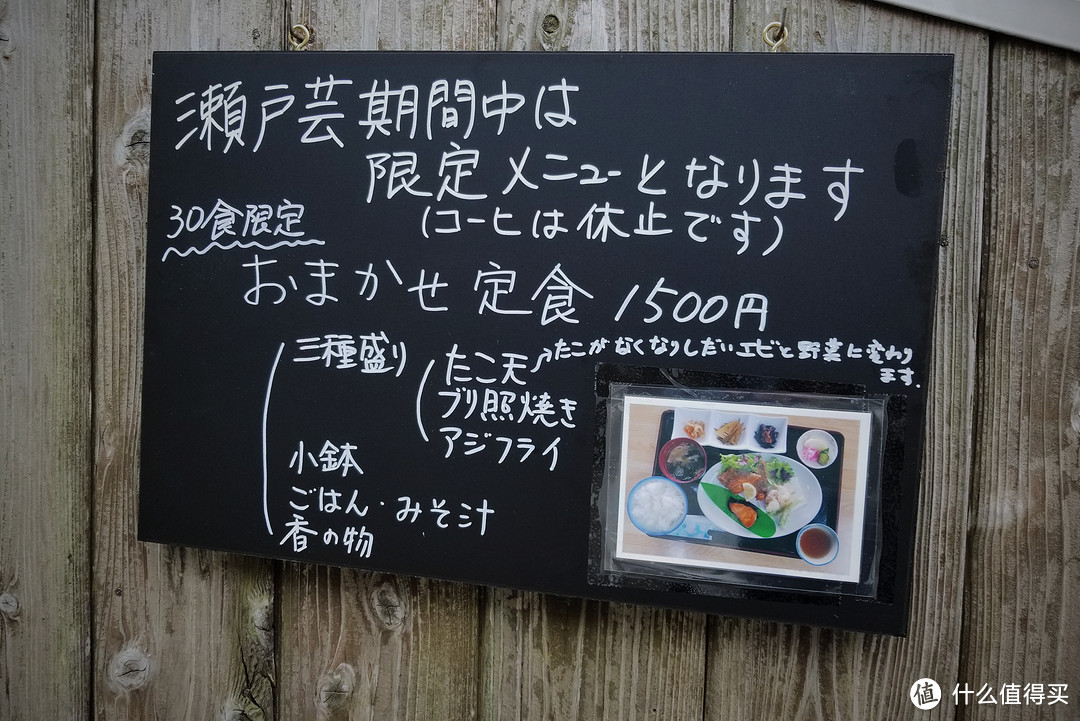 瀬戸芸期間中は
限定メニューとなります
(コーヒは休止です)
30食限定
おまかせ定食 1500円
三種盛り
たこ天
たこがなくなりしだいエビと野菜に変わり
ます。
ブリ照焼き
アジフライ
小鉢
ごはん・みそ汁
香の物
值 什么值得买